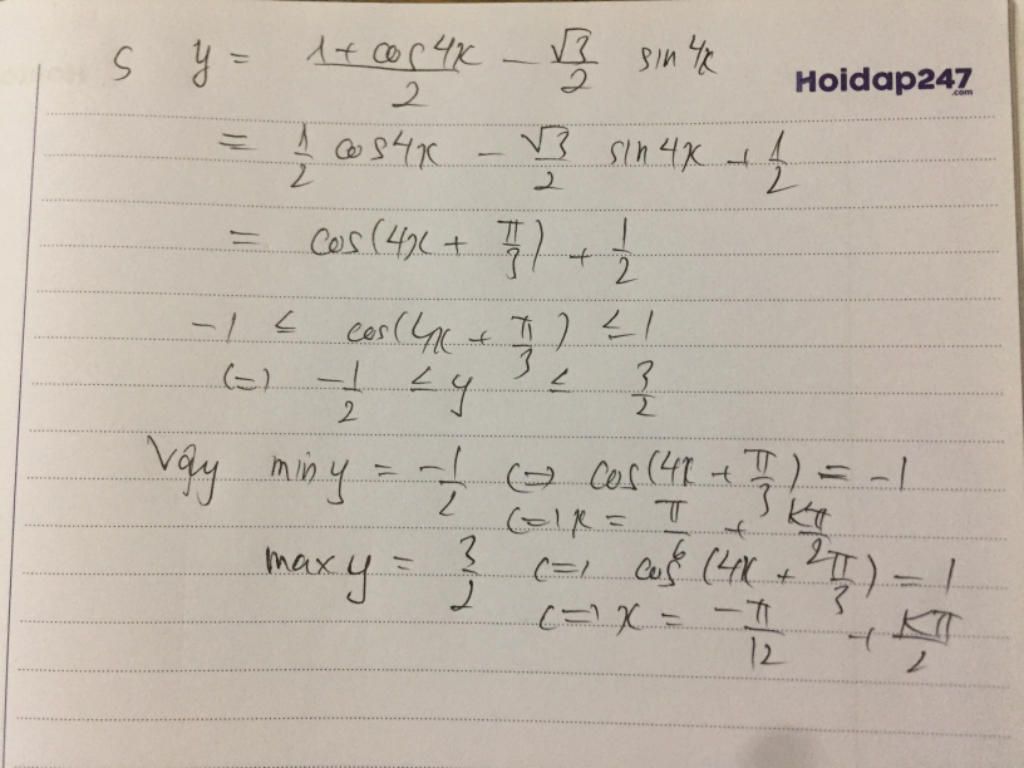 5 y = (1 + cos4x)/2 − √3/2 sin4x
Hoidap247
.com
= 1/2 cos4x − √3/2 sin4x + 1/2
= cos(4x + π/3) + 1/2
−1 ≤ cos(4x + π/3) ≤ 1
(=) −1/2 ≤ y ≤ 3/2
Vậy min y = −1/2 (=) cos(4x + π/3) = −1
(=) x = π/6 + kπ/2
max y = 3/2 (=) cos(4x + π/3) = 1
(=) x = −π/12 + kπ/2